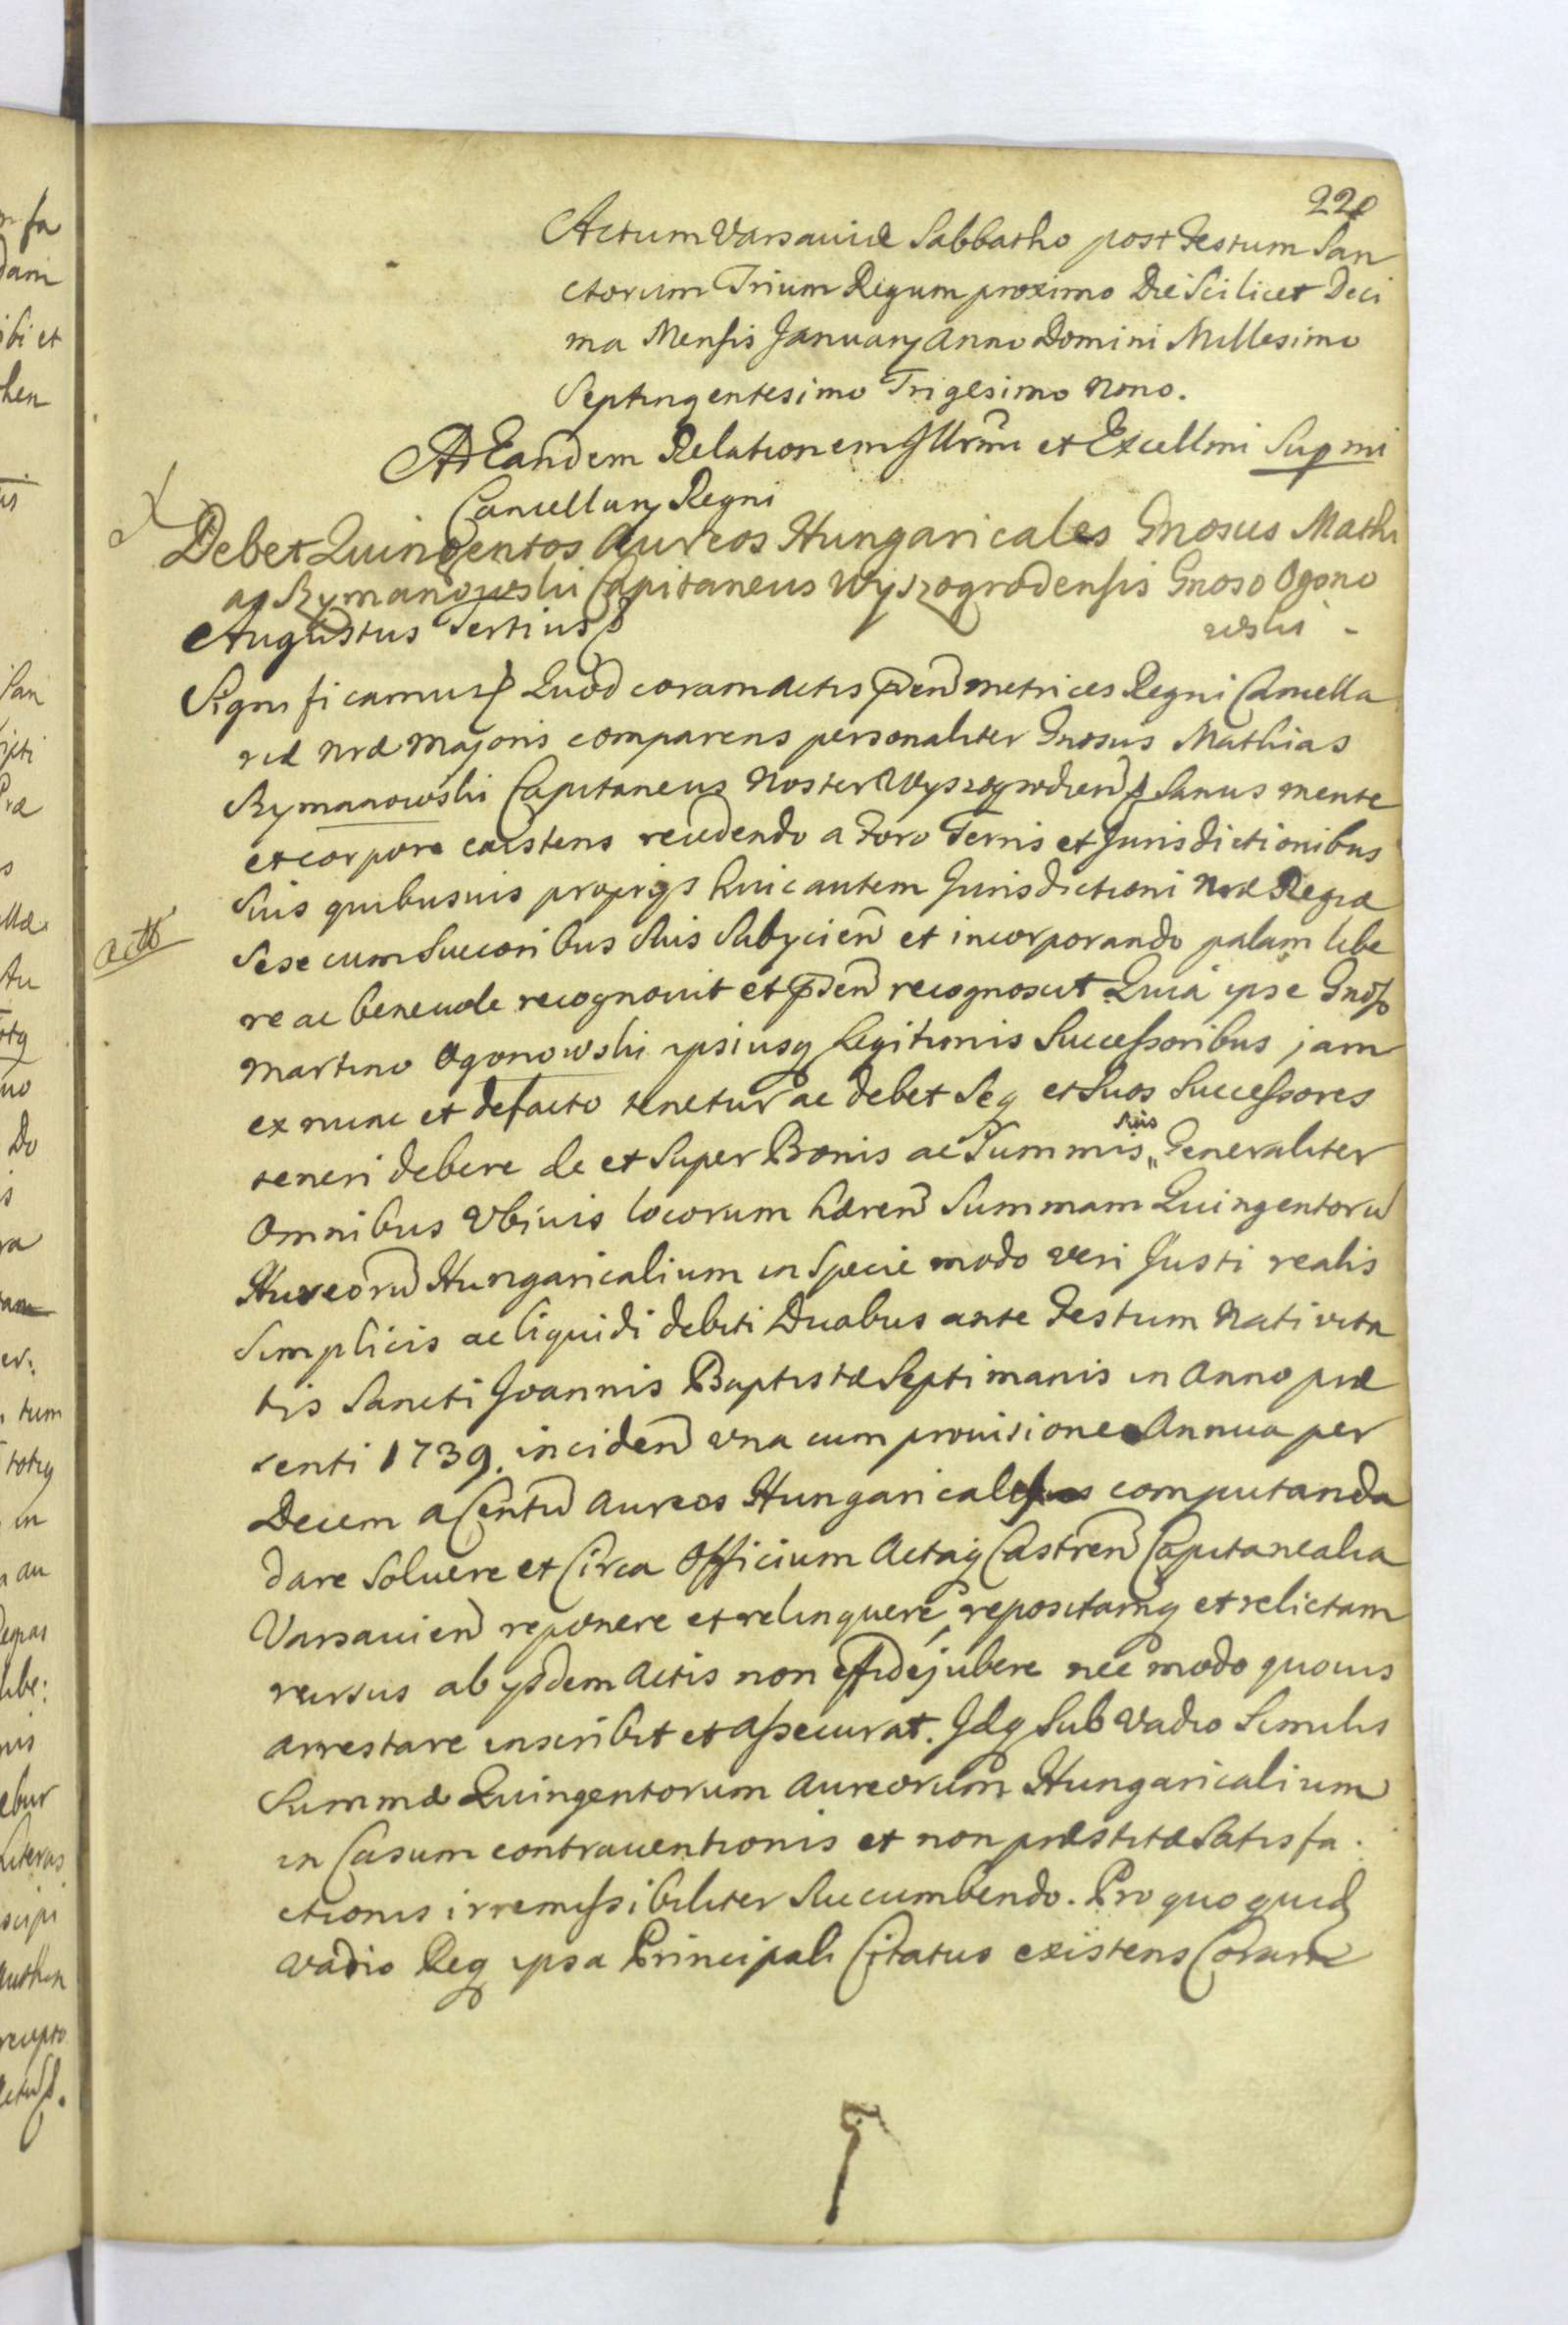 220
Actum Varsaviæ Sabbatho post Festum San
ctorum Trium Regum proximo Die Scilicet Deci
ma Mensis January Anno Domini Millesimo
Septingentesimo Trigesimo Nono.
Ad Eandem Relationem Illrmi et Excellmi Supmi
Cancellary Regni
Debet Quingentos Aureos Hungaricales Gnosus Mathi
as Rymanowski Capitaneus Wyszogrodensis Gnoso Ogono
wski
Augustus Tertius
Significamus Quod coram Actis pden metrices Regni Cancella
riæ nræ Majoris comparens personaliter Gnosus Mathias
Rymanowski Capitaneus Noster Wyszogrodien Sanus mente
et corpore existens recedendo a Foro Terris et Jurisdictionibus
Suis quibusvis propriys huic autem Jurisdictioni Nræ Regiæ
actt
Sese cum Succoribus Suis Subycien et incorporando palam libe
re ac benevole recognovit et pden recognoscit Quia ipse Gnoso
Martino Ogonowski ipsiusq Legitimis Successoribus jam
ex nunc et defacto tenetur ac debet Seq et Suos Successores
teneri debere de et Super Bonis ac Summis Suis Generaliter
Omnibus Ubivis locorum hæren Summam Quingentoru
Aureoru Hungaricalium in Specie modo veri Justi realis
Simplicis ac liquidi debiti Duabus ante Festum Nativita
tis Sancti Joannis Baptistæ Septimanis in Anno præ
senti 1739. inciden una cum provisione Annua per
Decem a Centu Aureos Hungaricales computanda
dare Solvere et Circa Officium Actaq Castren Capitanealia
Varsavien reponere et relinquere, repositamq et relictam
rursus ab ysdem Actis non effidejubere nec modo quovis
arrestare inscribit et assecurat. Idq Sub Vadio Similis
Summæ Quingentorum Aureorum Hungaricalium
in Casum contraventionis et non præstitæ Satisfa
ctionis irremissibiliter Succumbendo. Pro quo quid
Vadio Req ipsa Principali Citatus existens Coram